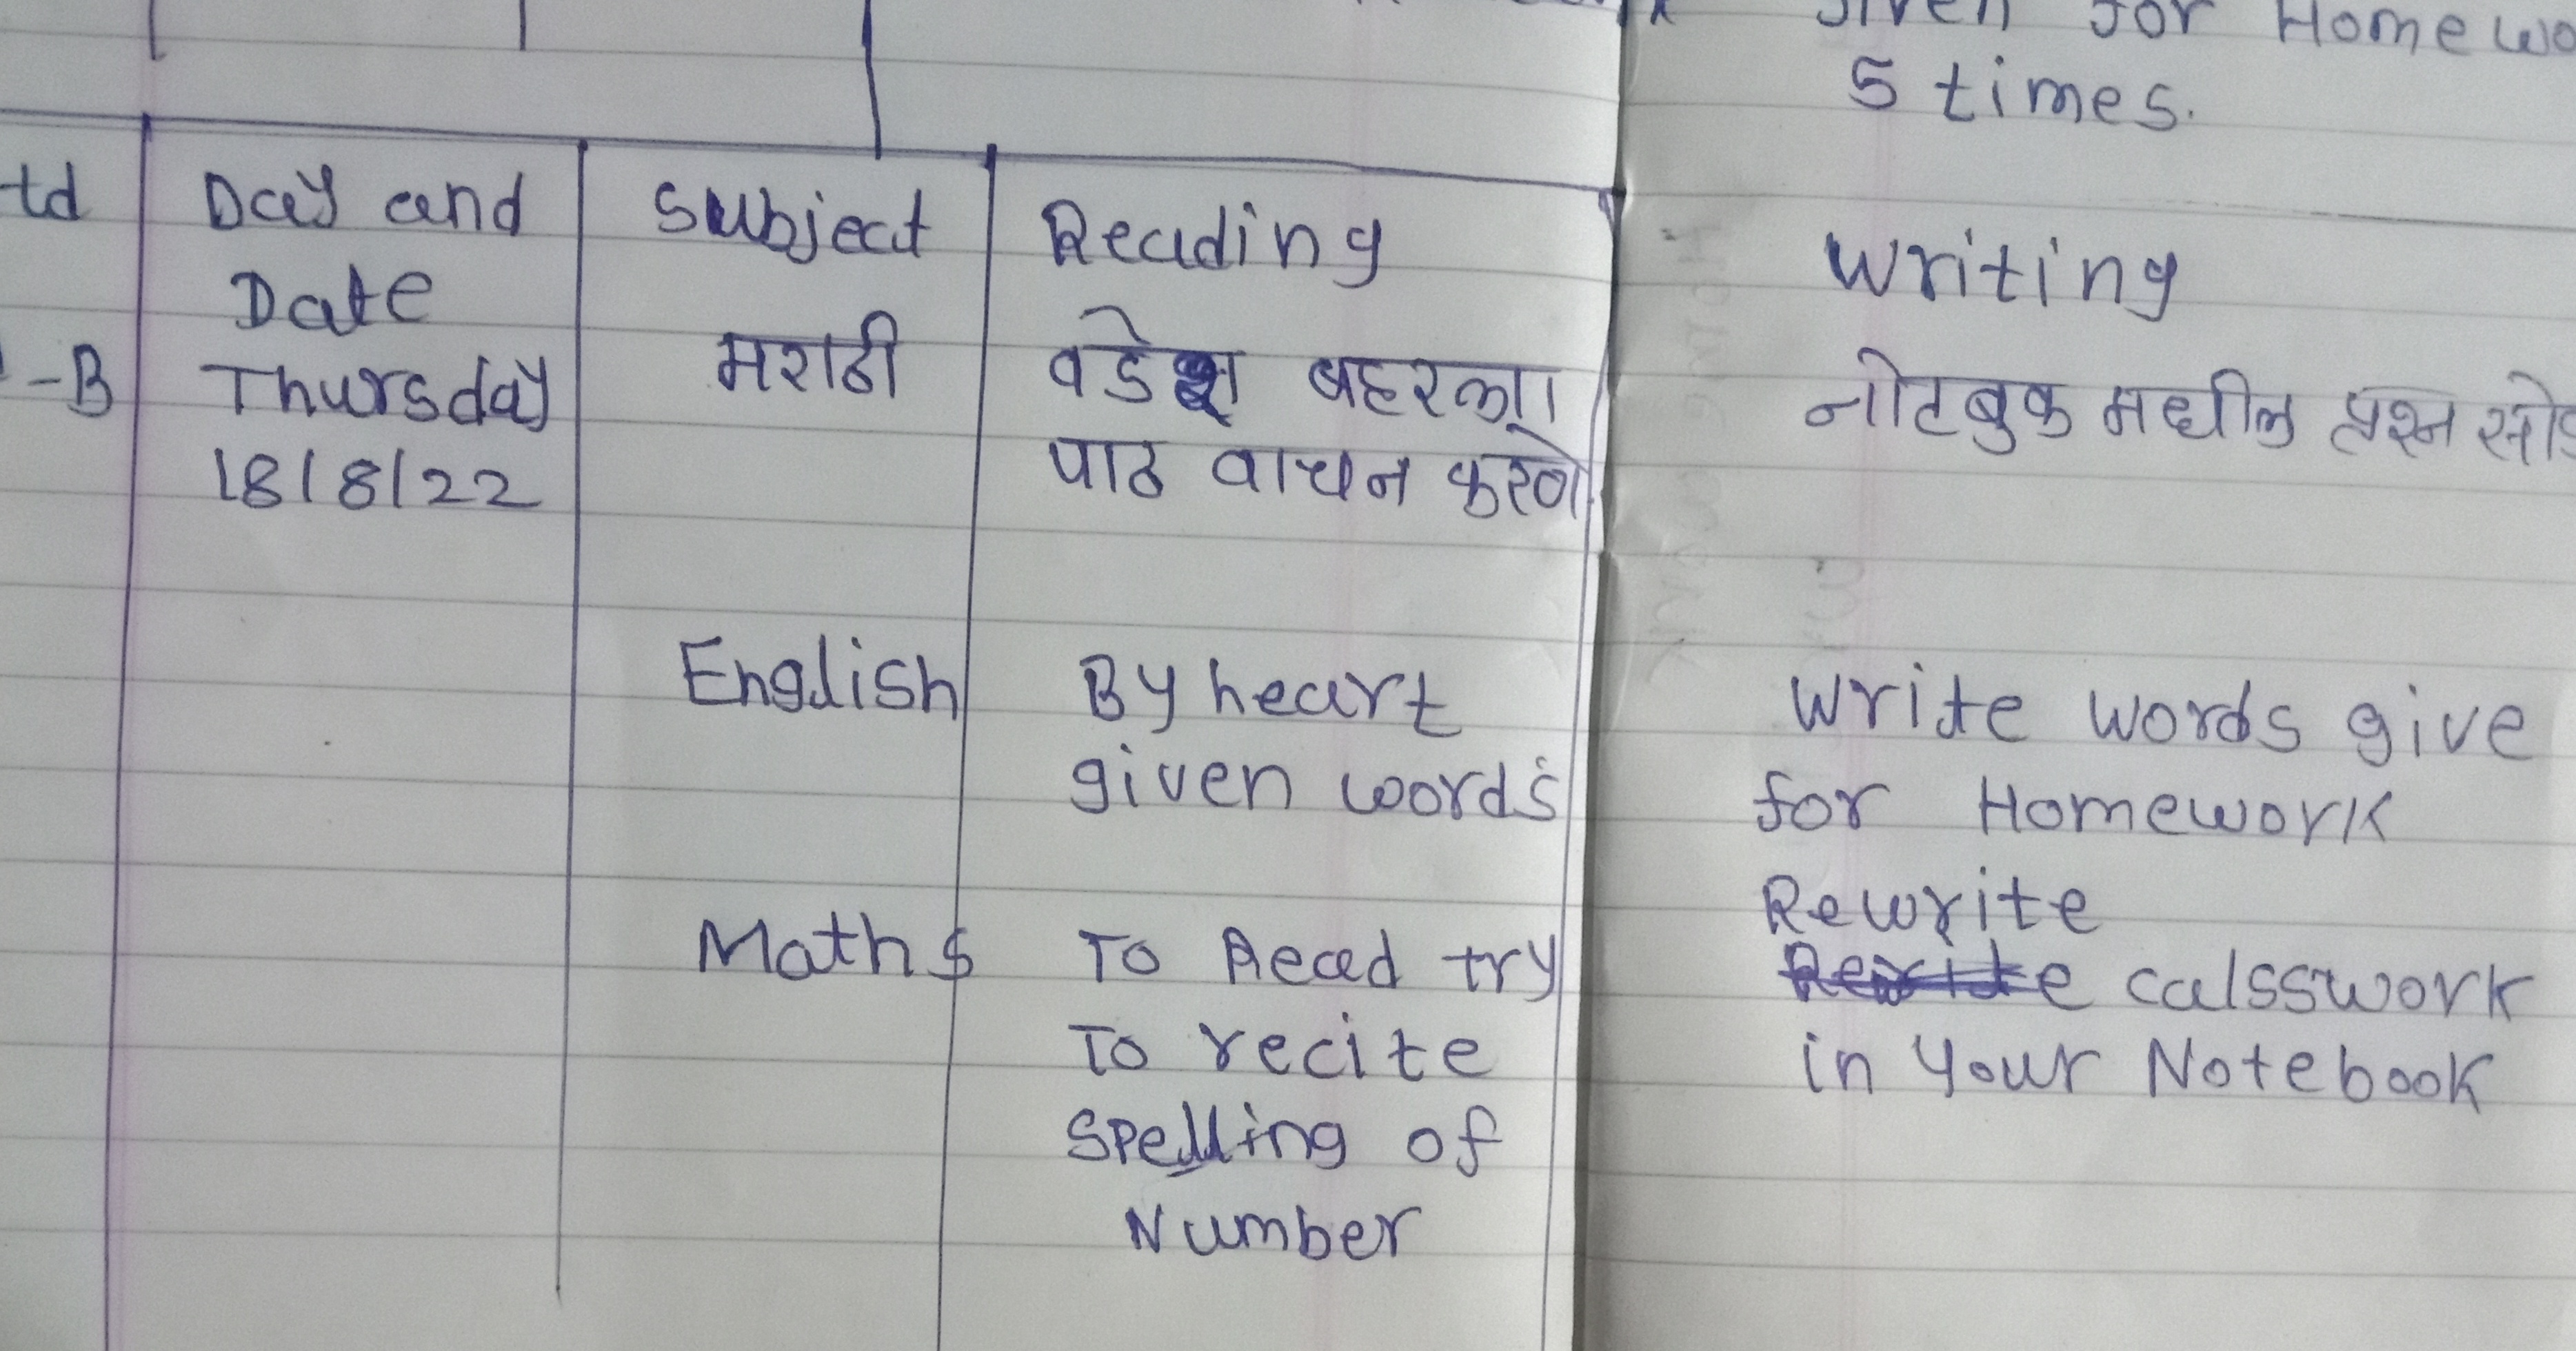 given for Homewo
5 times.
td Day and Subject Reading Writing
Date
-B Thursday मराठी बहरला नोटबुक मधील प्रश्न सोड
18/8/22 पाठ वाचन करणे
English By heart Write words give
given words for Homework
Rewrite
Maths To Read try calsswork
To recite in your Notebook
Spelling of
Number